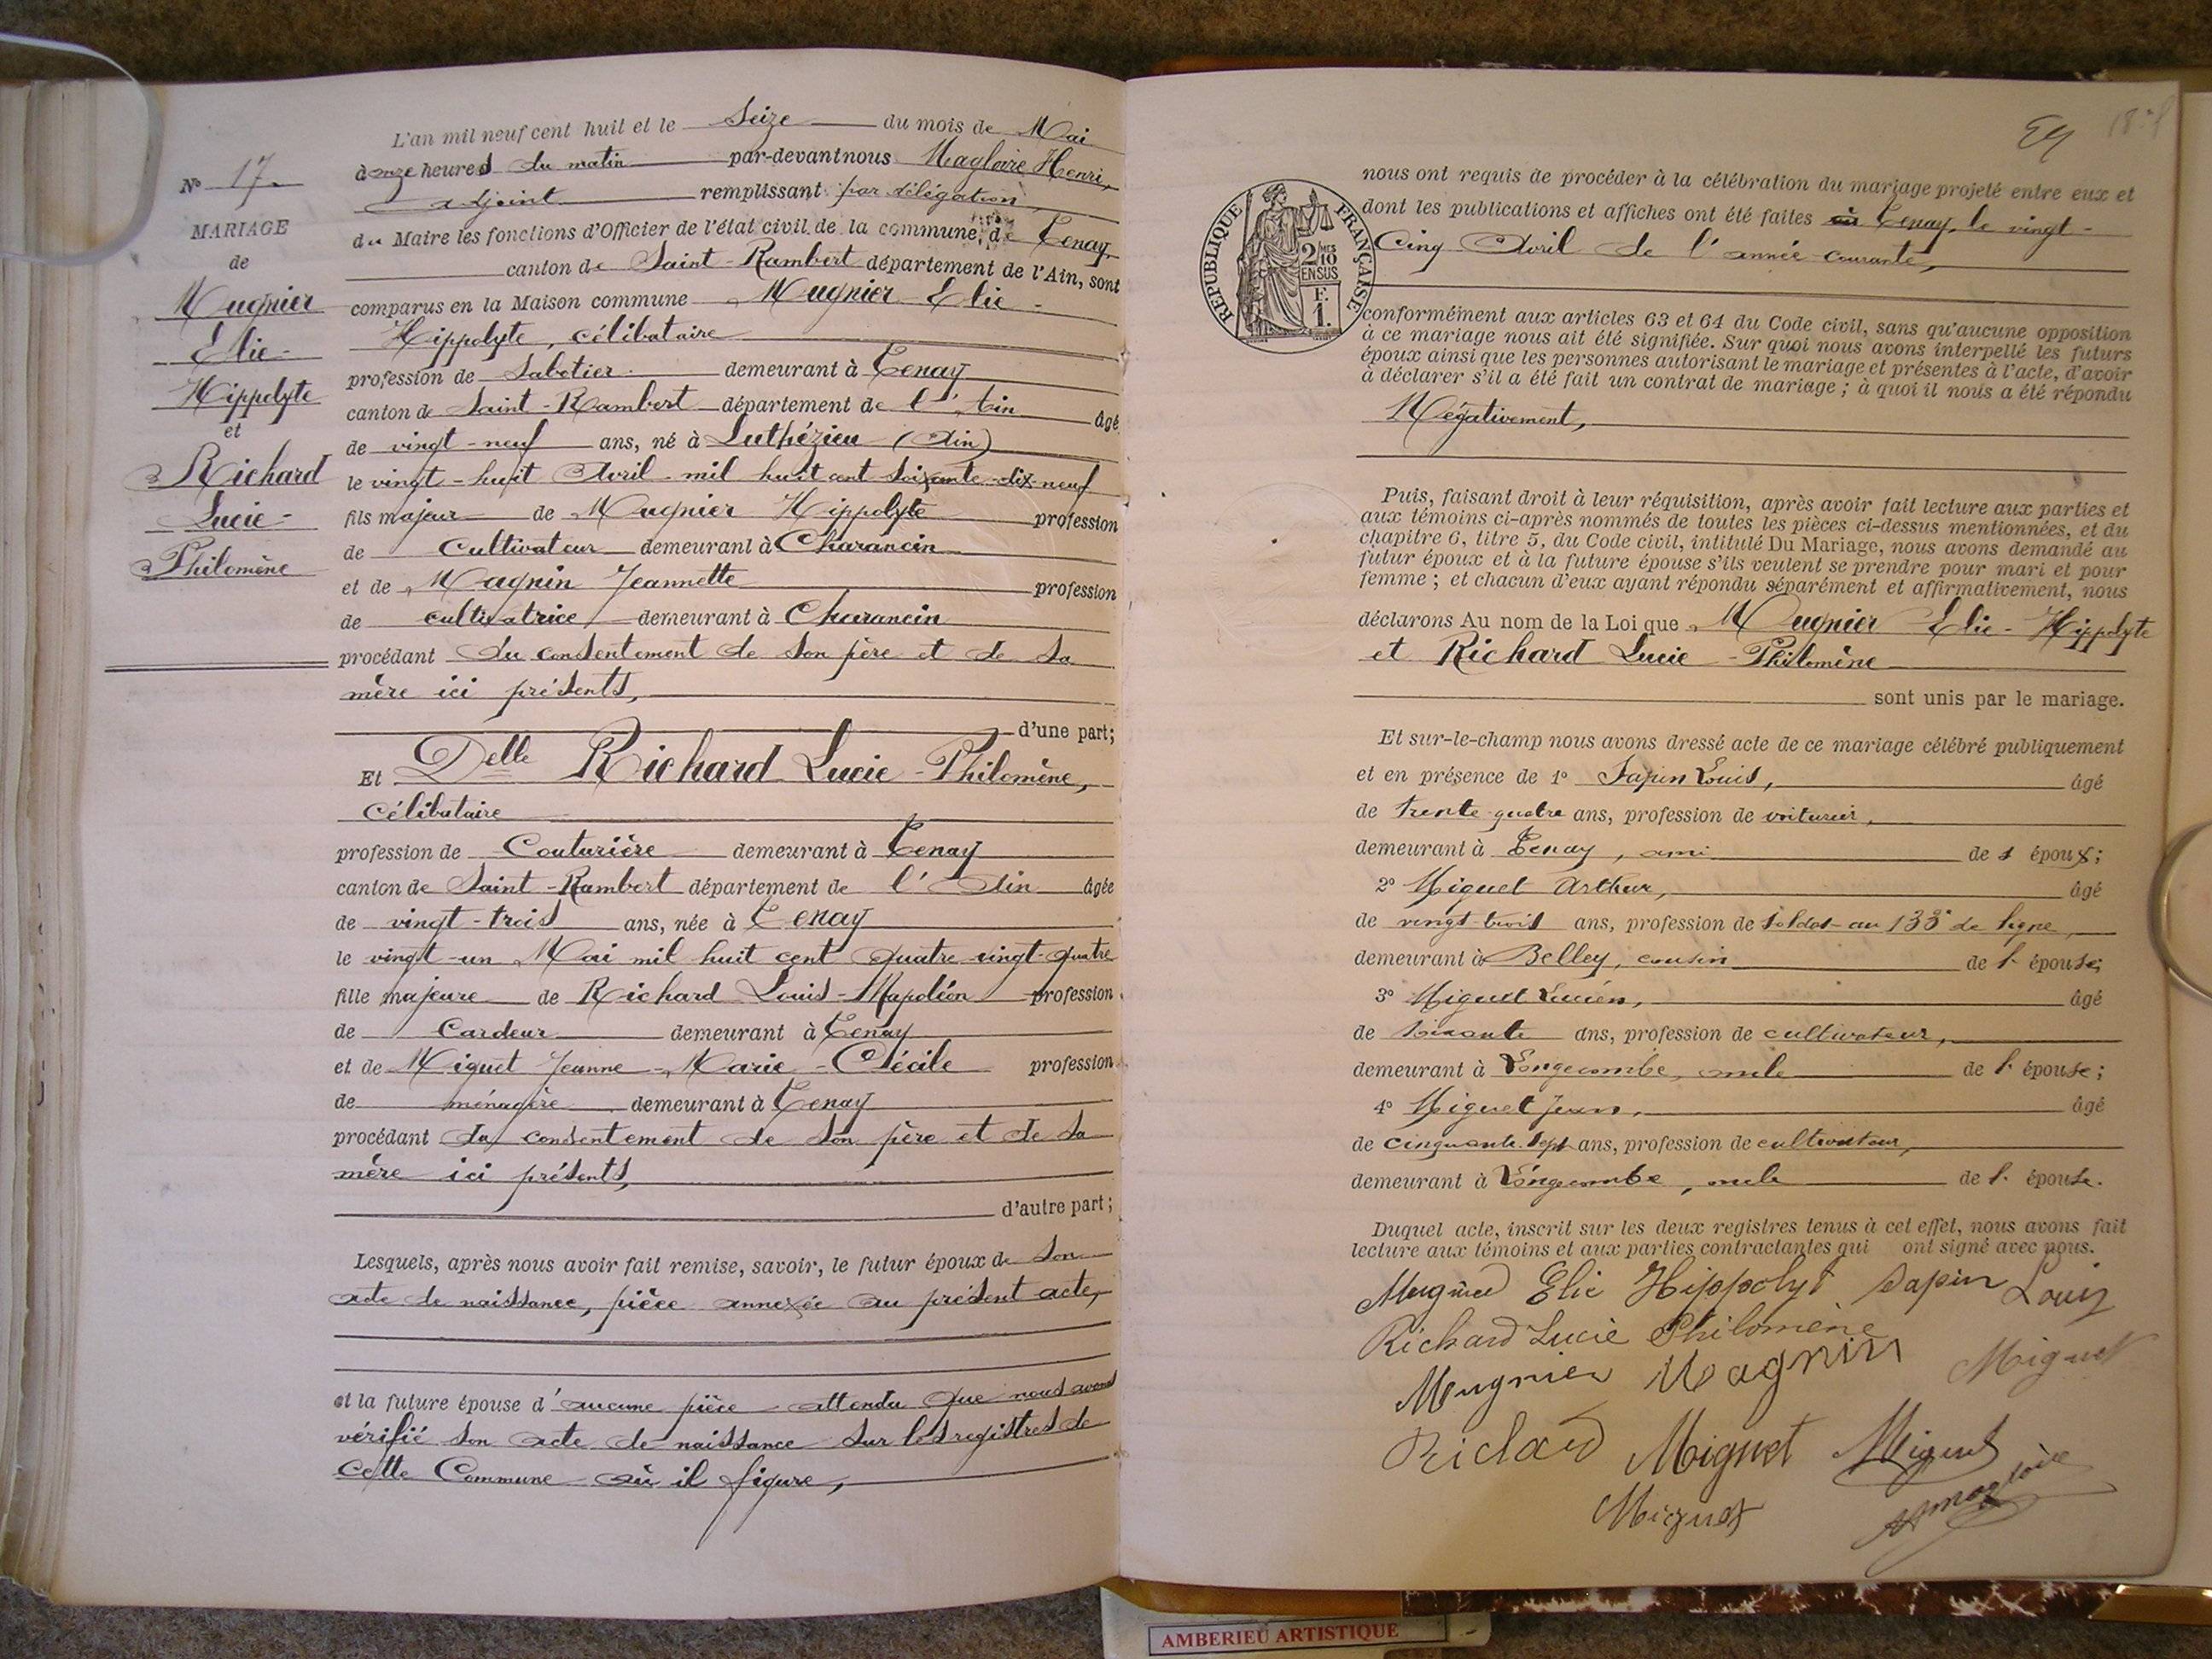 L'an mil neuf cent huit et le Seize du mois de Mai
à onze heures du matin par-devant nous Magloire Henri,
adjoint remplissant par délégation
du Maire les fonctions d'Officier de l'état civil de la commune de Tenay,
canton de Saint-Rambert département de l'Ain, sont
comparus en la Maison commune Mugnier Elie-
Hippolyte, célibataire
profession de Sabotier demeurant à Tenay
canton de Saint-Rambert département de l'Ain âgé
de vingt-neuf ans, né à Luthézieu (Ain)
le vingt-huit Avril mil huit cent soixante-dix-neuf
fils majeur de Mugnier Hippolyte profession
de Cultivateur demeurant à Charancin
et de Magnin Jeannette profession
de cultivatrice demeurant à Charancin
procédant du consentement de son père et de sa
mère ici présents,
d'une part;
Et Delle Richard Lucie-Philomène,
célibataire
profession de Couturière demeurant à Tenay
canton de Saint-Rambert département de l'Ain âgée
de vingt-trois ans, née à Tenay
le vingt-un Mai mil huit cent quatre-vingt-quatre
fille majeure de Richard Louis-Napoléon profession
de Cardeur demeurant à Tenay
et de Miguet Jeanne-Marie-Cécile profession
de ménagère demeurant à Tenay
procédant du consentement de son père et de sa
mère ici présents,
d'autre part;
Lesquels, après nous avoir fait remise, savoir, le futur époux de son
acte de naissance, pièce annexée au présent acte,
et la future épouse d'aucune pièce attendu que nous avons
vérifié son acte de naissance sur les registres de
cette Commune où il figure,
No 17
MARIAGE
de
Mugnier
Elie-
Hippolyte
et
Richard
Lucie-
Philomène
REPUBLIQUE FRANÇAISE
2/10 MES
EN SUS
F.
1.
nous ont requis de procéder à la célébration du mariage projeté entre eux et
dont les publications et affiches ont été faites à Tenay, le vingt-
Cinq Avril de l'année courante,
conformément aux articles 63 et 64 du Code civil, sans qu'aucune opposition
à ce mariage nous ait été signifiée. Sur quoi nous avons interpellé les futurs
époux ainsi que les personnes autorisant le mariage et présentes à l'acte, d'avoir
à déclarer s'il a été fait un contrat de mariage ; à quoi il nous a été répondu
Négativement,
Puis, faisant droit à leur réquisition, après avoir fait lecture aux parties et
aux témoins ci-après nommés de toutes les pièces ci-dessus mentionnées, et du
chapitre 6, titre 5, du Code civil, intitulé Du Mariage, nous avons demandé au
futur époux et à la future épouse s'ils veulent se prendre pour mari et pour
femme ; et chacun d'eux ayant répondu séparément et affirmativement, nous
déclarons Au nom de la Loi que Mugnier Elie-Hippolyte
et Richard Lucie-Philomène
sont unis par le mariage.
Et sur-le-champ nous avons dressé acte de ce mariage célébré publiquement
et en présence de 1o Sapin Louis, âgé
de trente-quatre ans, profession de voiturier,
demeurant à Tenay, ami des époux;
2o Miguet Arthur, âgé
de vingt-trois ans, profession de soldat au 133e de ligne,
demeurant à Belley, cousin de l'épouse;
3o Miguet Lucien, âgé
de soixante ans, profession de cultivateur,
demeurant à Longecombe, oncle de l'épouse;
4o Miguet Jean, âgé
de cinquante-sept ans, profession de cultivateur,
demeurant à Longecombe, oncle de l'épouse.
Duquel acte, inscrit sur les deux registres tenus à cet effet, nous avons fait
lecture aux témoins et aux parties contractantes qui ont signé avec nous.
Mugnier Elie Hippolyt Sapin Louis
Richard Lucie Philomène
Mugnier Magnin Miguet
Richard Miguet Miguet
Miguet Hmagloire
AMBERIEU ARTISTIQUE